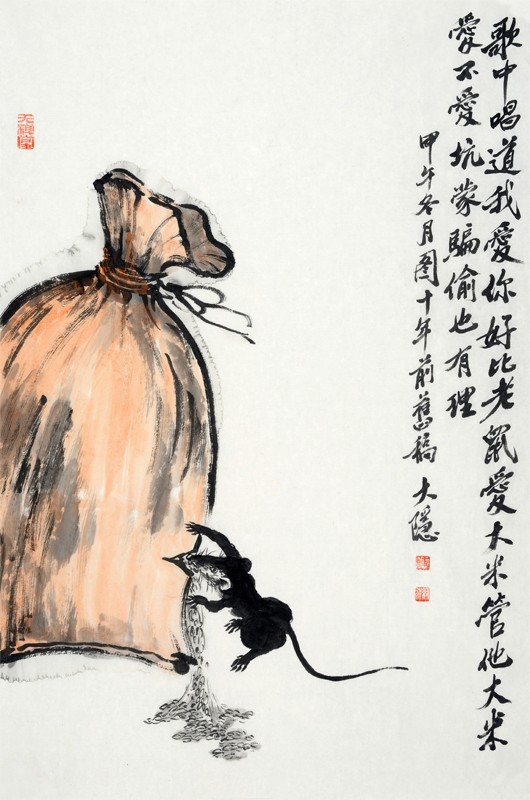 歌中唱道我愛你好比老鼠愛大米管他大米
愛不愛坑蒙騙偷也有理
甲午冬月图十年前舊稿 大隱